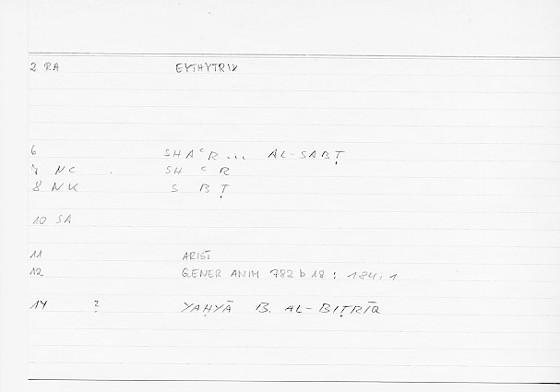 2 RA EYTHYTRIX
6 SHAʿR... AL-SABṬ
7 NC SH ʿ R
8 NK S B Ṭ
10 SA
11 ARIST
12 GENER ANIM 782 b 18 : 184, 1
14 ? YAḤYĀ B. AL-BIṬRĪQ